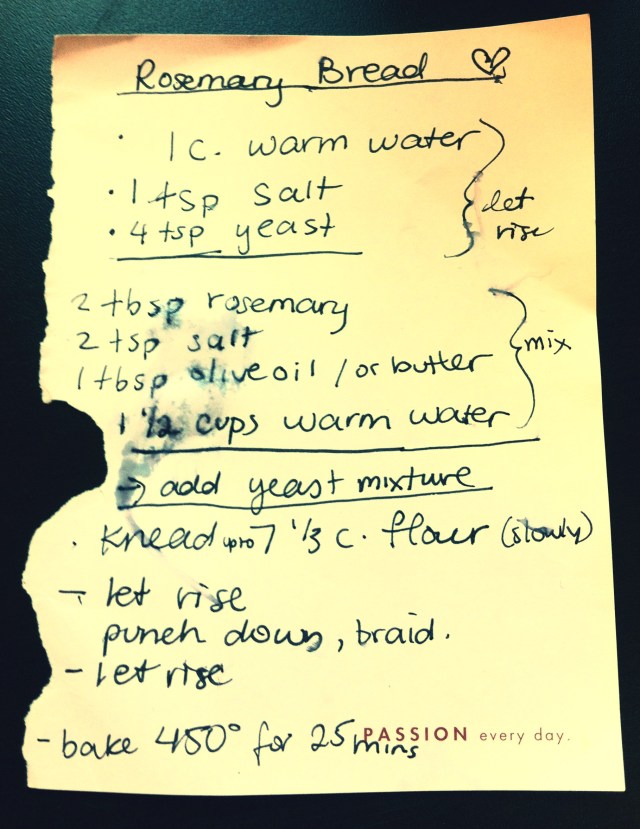 Rosemary Bread
• 1 c. warm water
• 1 tsp salt
• 4 tsp yeast
let
rise
2 tbsp rosemary
2 tsp salt
1 tbsp olive oil / or butter
1 1/2 cups warm water
mix
→ add yeast mixture
• Knead upto 7 1/3 c. flour (slowly)
- let rise
punch down, braid.
- let rise
- bake 450° for 25 mins
PASSION every day.